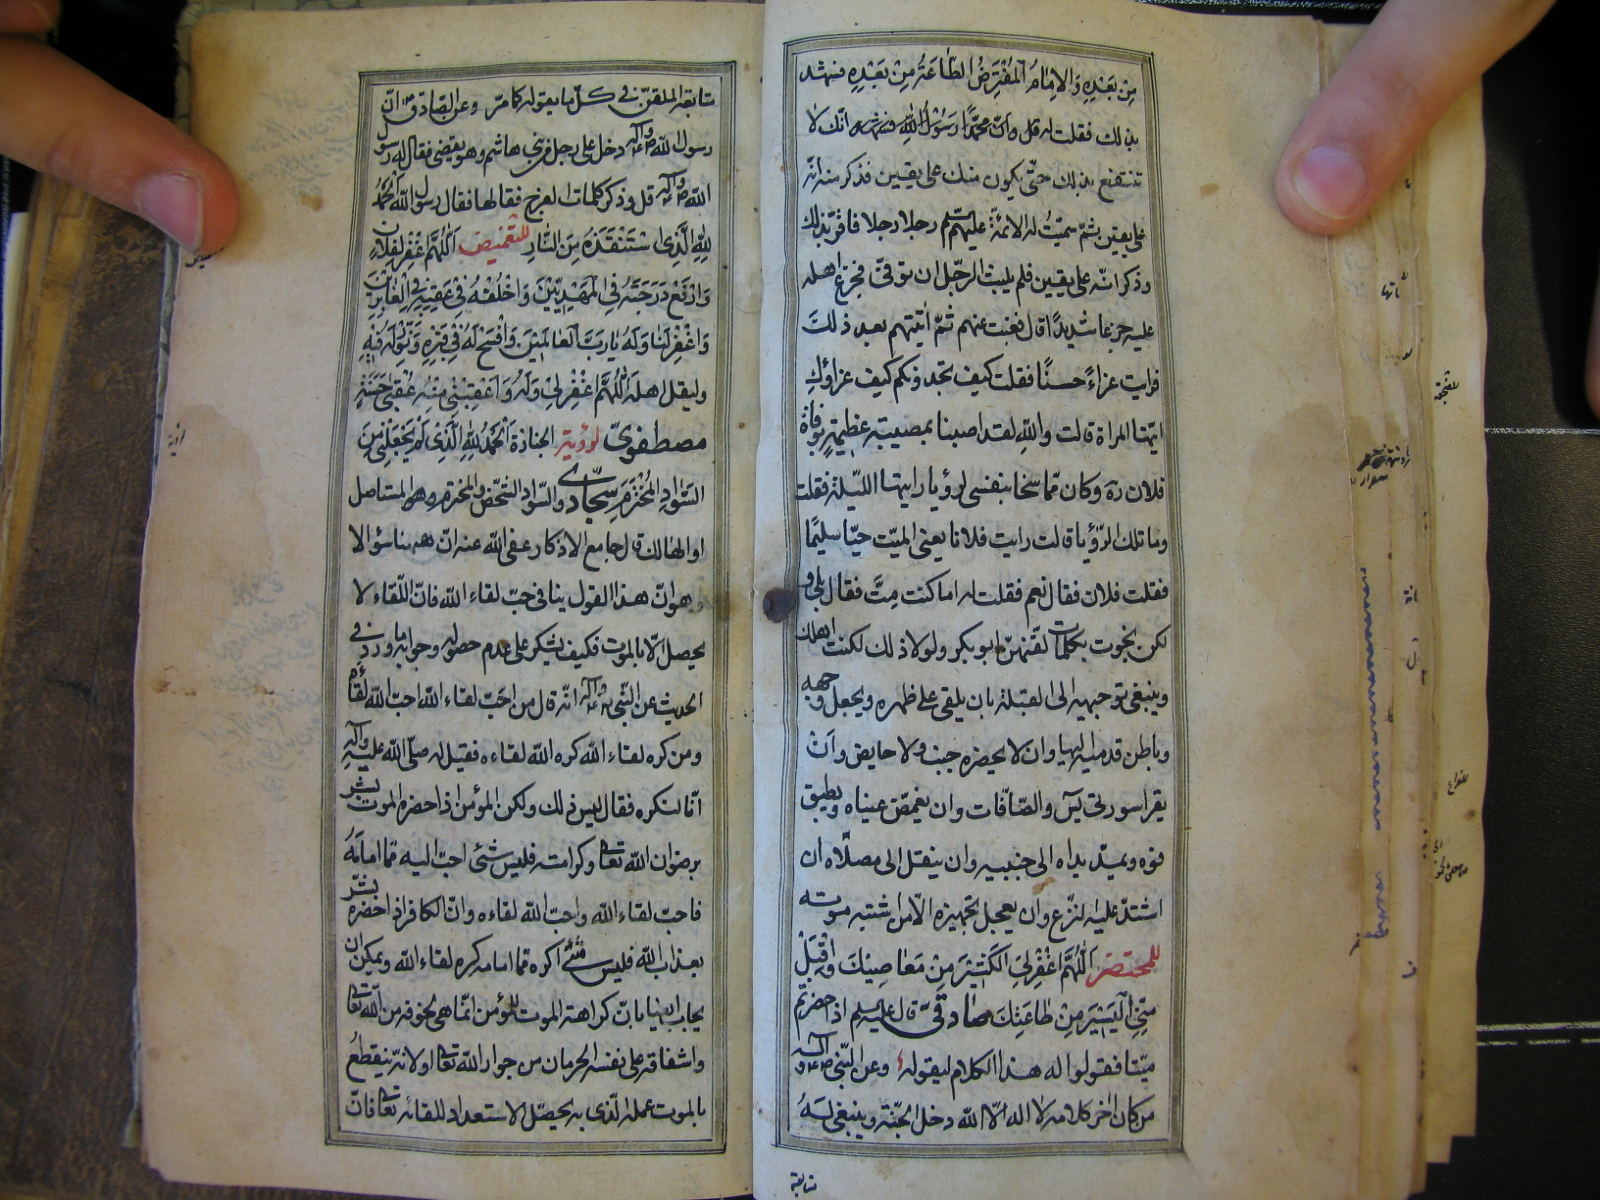 من بعده والامام المفترض الطاعة من بعده فتشهد
بذلك فقلت له قل وان محمدا رسول الله فشهد انك لا
تنتفع بذلك حتى يكون منك على يقين فذكر منه انه
على يقين ثم سميت له الائمة عليهم السلم رجلا رجلا فاقر بذلك
وذكر انه على يقين فلم يلبث الرجل ان توفى فجزع اهله
عليه جزعا شديدا قال فغبت عنهم ثم اتيتهم بعد ذلك
فرايت عزاء حسنا فقلت كيف تجدونكم كيف عزاؤك
ايتها المراة قالت والله لقد اصبنا بمصيبة عظيمة بوفاة
فلان ره وكان مما سخا بنفسى لرؤيا رايتها الليلة فقلت
وما تلك الرؤيا قالت رايت فلانا يعنى الميت حيا سليما
فقلت فلان فقال نعم فقلت له اما كنت مت فقال بلى و
لكن نجوت بكلمات لقنهن ابو بكر ولولا ذلك لكنت اهلك
وينبغى توجيهه الى القبلة بان يلقى على ظهره ويجعل وجهه
وباطن قدميه اليها وان لا يحضره جنب ولا حايض وان
يقرا سورتى يس والصافات وان يغمض عيناه ويطبق
فوه ويمد يداه الى جنبيه وان ينقل الى مصلاه ان
اشتد عليه النزع وان يعجل تجهيزه الا من اشتبه موته
للمحتضر اللهم اغفر لى الكثير من معاصيك واقبل
منى اليسير من طاعتك صادقى قال عليه السلم اذا حضرتم
ميتا فقولوا له هذا الكلام ليقوله وعن النبى ص وآله
من كان آخر كلامه لا اله الا الله دخل الجنة وينبغى له
متابعة
متابعة الملقن فى كل ما يقوله كما مر وعن الصادق ع ان
رسول الله ص وآله دخل على رجل من بنى هاشم وهو يقضى فقال له رسول
الله ص وآله قل وذكر كلمات الفرج فقالها فقال رسول الله الحمد
لله الذى استنقذه من النار للتغميض اللهم اغفر لفلان
وارفع درجته فى المهديين واخلفه فى عقبه فى الغابرين
واغفر لنا وله يا رب العالمين وافسح له فى قبره ونور له فيه
وليقل اهله اللهم اغفر لى وله واعقبنى منه عقبى حسنة
مصطفوى لرؤية الجنازة الحمد لله الذى لم يجعلنى من
السواد المخترم سجادى والسواد الشخص والمخترم هو المستاصل
او الهالك قال جامع الاذكار عفى الله عنه ان ههنا سؤالا
وهو ان هذا القول ينافى حب لقاء الله فان اللقاء لا
يحصل الا بالموت فكيف يشكر على عدم حصوله وجوابه ما ورد فى
الحديث عن النبى ص وآله انه قال من احب لقاء الله احب الله لقاه
ومن كره لقاء الله كره الله لقاءه فقيل له صلى الله عليه وآله
انا لنكره فقال ليس ذلك ولكن المؤمن اذا حضره الموت بشر
برضوان الله تعالى وكرامته فليس شئ احب اليه مما امامه
فاحب لقاء الله واحب الله لقاءه وان الكافر اذا حضره بشر
بعذاب الله فليس شئ اكره مما امامه كره لقاء الله ويمكن ان
يجاب ايضا بان كراهة الموت للمؤمن انما هى لخوفه من الله تعالى
واشفاقه على نفسه الحرمان من جوار الله تعالى او لانه ينقطع
بالموت عمله الذى به يحصل الاستعداد للقائه تعالى فان